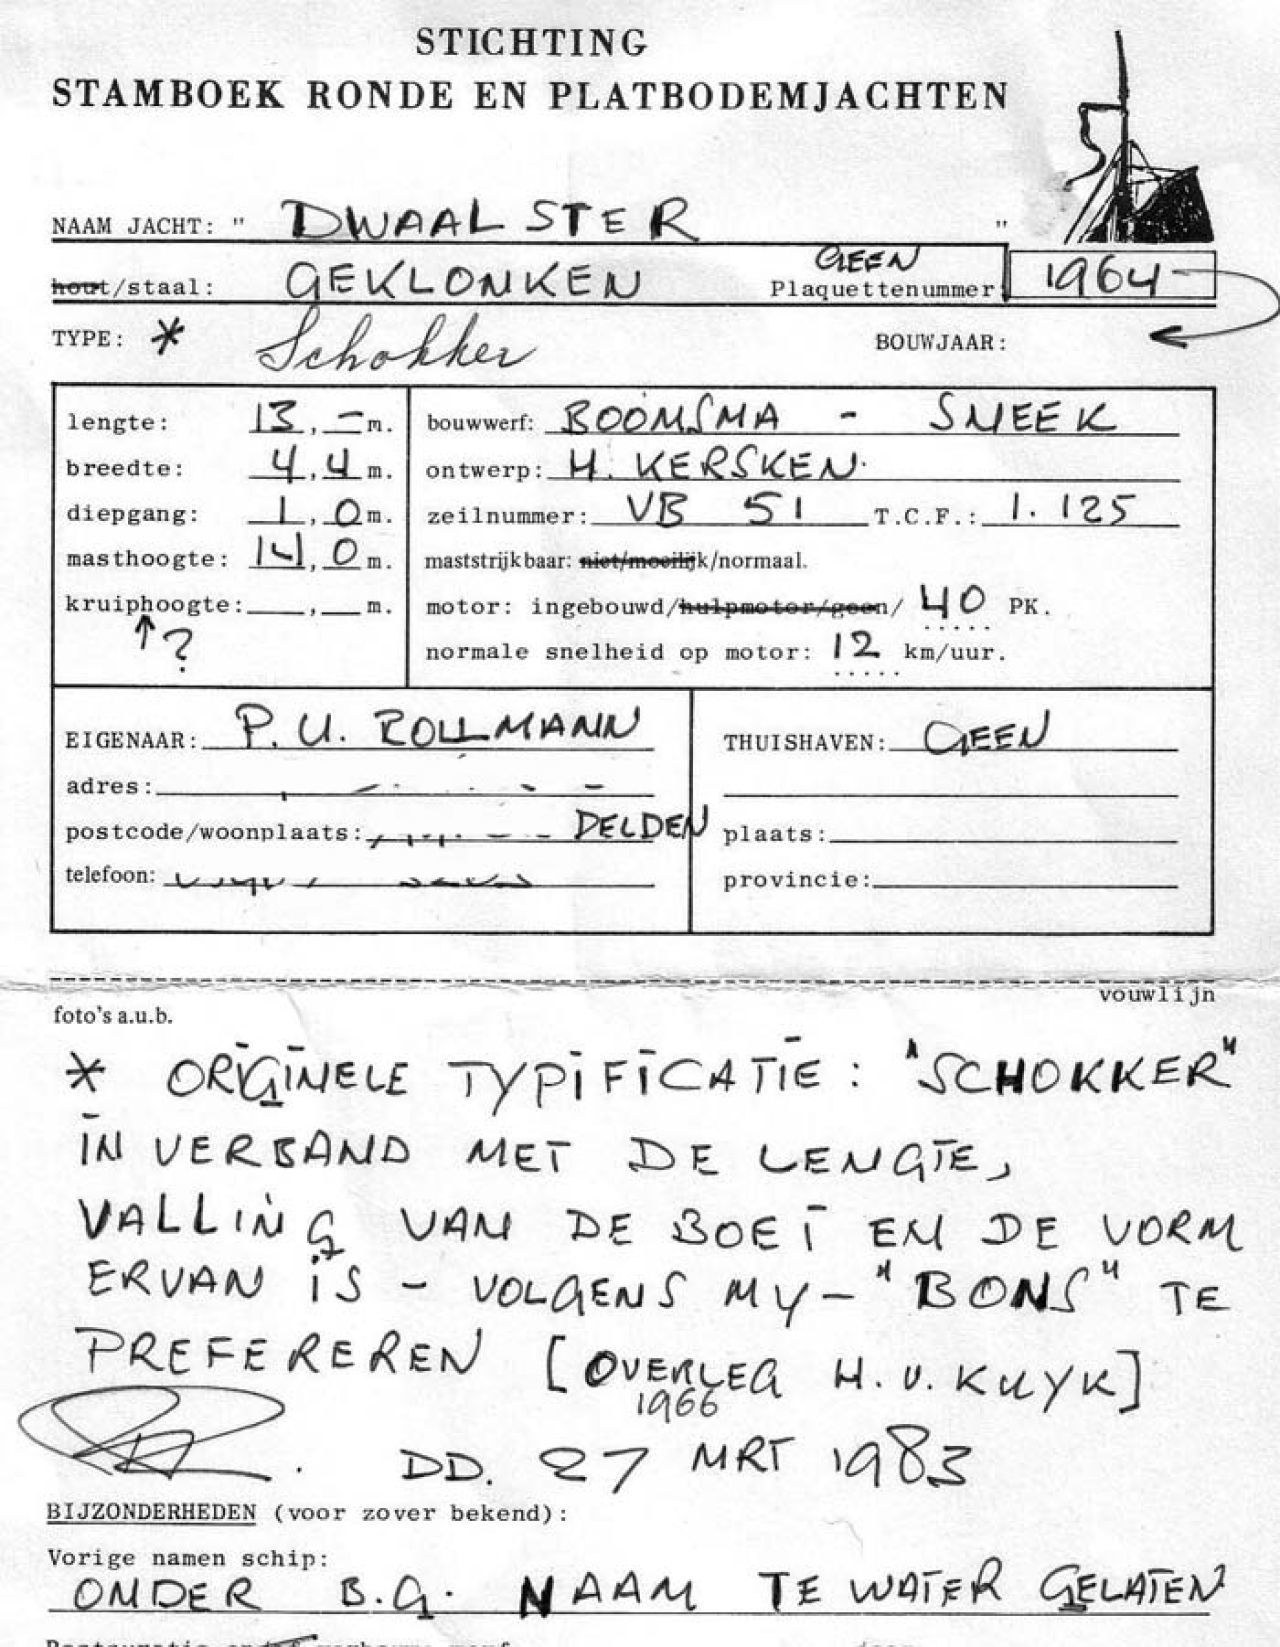 STICHTING
STAMBOEK RONDE EN PLATBODEMJACHTEN
NAAM JACHT: " DWAALSTER "
hout/staal: GEKLONKEN GEEN Plaquettenummer: 1964
TYPE: * Schokker BOUWJAAR:
lengte: 13,- m. bouwwerf: BOOMSMA - SNEEK
breedte: 4,4 m. ontwerp: H. KERSKEN
diepgang: 1,0 m. zeilnummer: VB 51 T.C.F.: 1.125
masthoogte: 14,0 m. maststrijkbaar: niet/moeilijk/normaal.
kruiphoogte: , m. motor: ingebouwd/hulpmotor/geen/ 40 PK.
↑? normale snelheid op motor: 12 km/uur.
EIGENAAR: P. U. ROLLMANN THUISHAVEN: GEEN
adres:
postcode/woonplaats: DELDEN plaats:
telefoon: provincie:
vouwlijn
foto's a.u.b.
* ORIGINELE TYPIFICATIE: "SCHOKKER"
IN VERBAND MET DE LENGTE,
VALLING VAN DE BOEI EN DE VORM
ERVAN IS - VOLGENS MY - "BONS" TE
PREFEREREN [OVERLEG H. v. KUYK]
1966
DD. 27 MRT 1983
BIJZONDERHEDEN (voor zover bekend):
Vorige namen schip:
ONDER B.G. NAAM TE WATER GELATEN